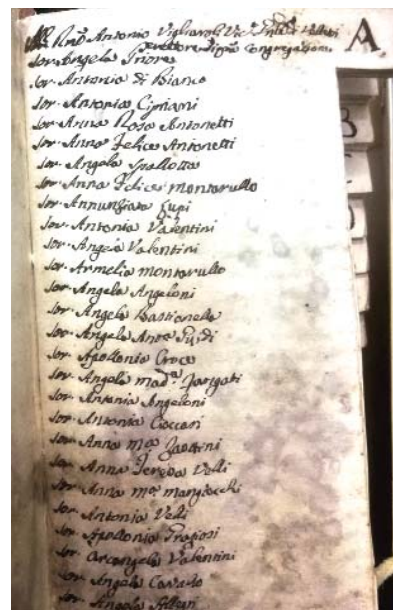 Antonio Vigliaroli
A
Sor. Angela Priora
Sor. Antonia di Bianco
Sor. Antonia Cipriani
Sor. Anna Rosa Antonetti
Sor. Anna Felice Antonetti
Sor. Angela Spallotta
Sor. Anna Felice Montarullo
Sor. Annunziata Lupi
Sor. Antonia Valentini
Sor. Angela Valentini
Sor. Armelia Montarullo
Sor. Angela Angeloni
Sor. Angela Bastianella
Sor. Angela
Sor. Apollonia Croce
Sor. Angela Mad.ª
Sor. Antonia Angeloni
Sor. Antonia Cioccari
Sor. Anna Mª
Sor. Anna Teresa Velli
Sor. Anna Mª Mangiocchi
Sor. Antonia Velli
Sor. Apollonia
Sor. Arcangela Valentini
Sor. Angela
Sor. Angela
B